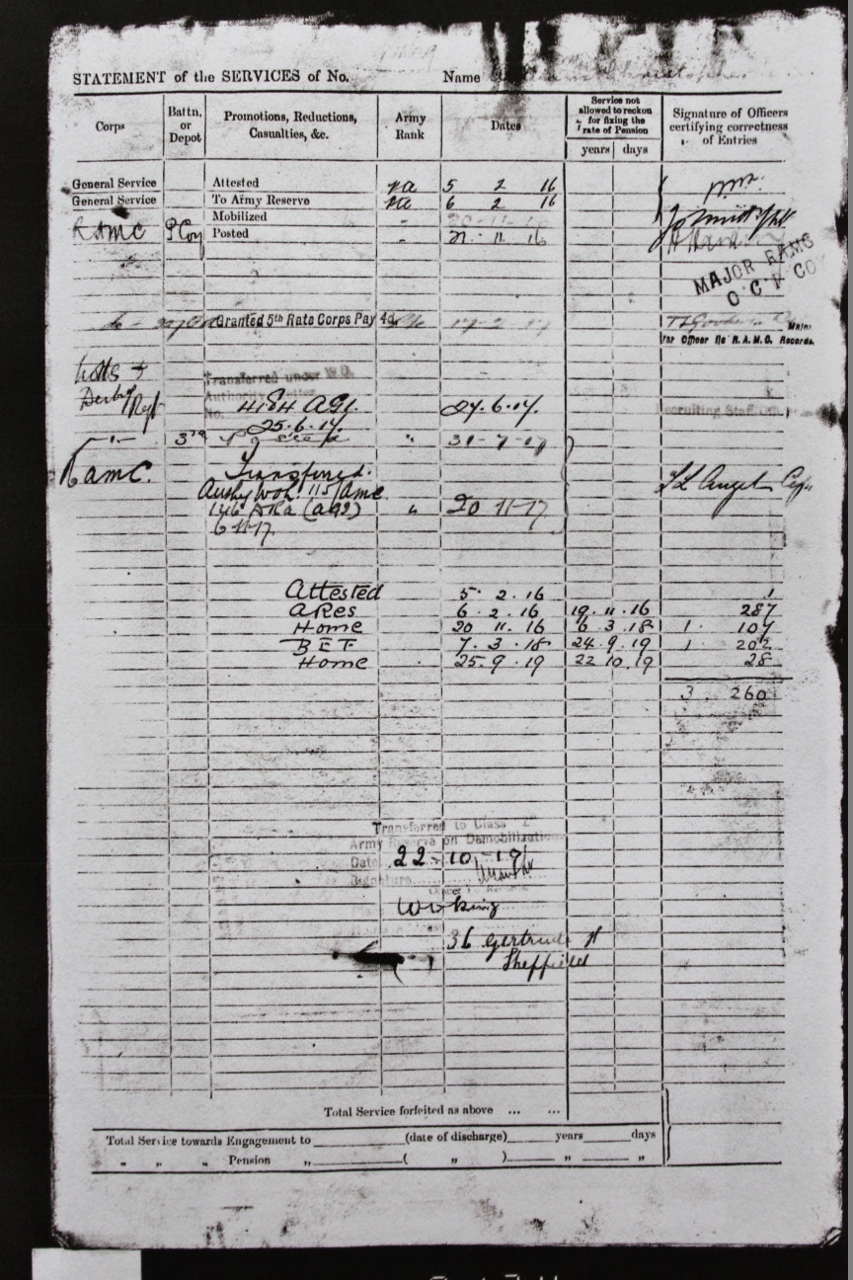 STATEMENT of the SERVICES of No. Name Christopher
Corps Battn. or Depot Promotions, Reductions, Casualties, &c. Army Rank Dates Service not allowed to reckon for fixing the rate of Pension years days Signature of Officers certifying correctness of Entries
General Service Attested Pte 5 2 16
General Service To Army Reserve Pte 6 2 16
Mobilized " 20-11-16
RAMC P Coy Posted " 21 11 16
MAJOR RAMC
O.C. CO
Granted 5th Rate Corps Pay 4d. Major
For Officer i/c R.A.M.C. Records.
Notts +
Derby Regt
Transferred under W.O.
Authority Letter
No. 4184 AG1. 27.6.17.
25.6.17.
Recruiting Staff Officer
-"- 3rd " 31-7-17
RAMC. Transferred.
Authy W.O. 115/AMC
146 (AG2) " 20 11-17
6-11-17
Attested 5. 2. 16 1
A Res 6. 2. 16 19. 11. 16 287
Home 20 11. 16 6 3. 18 1. 107
B E F 7. 3. 18 24. 9. 19 1. 202
Home 25. 9. 19 22 10. 19 28
3. 260
Transferred to Class "Z"
Army Reserve on Demobilization
Date 22-10-19
Signature
Woking
36 Gertrude St
Sheffield
Total Service forfeited as above ... ...
Total Service towards Engagement to (date of discharge) years days
" " " Pension " ( " ) " "